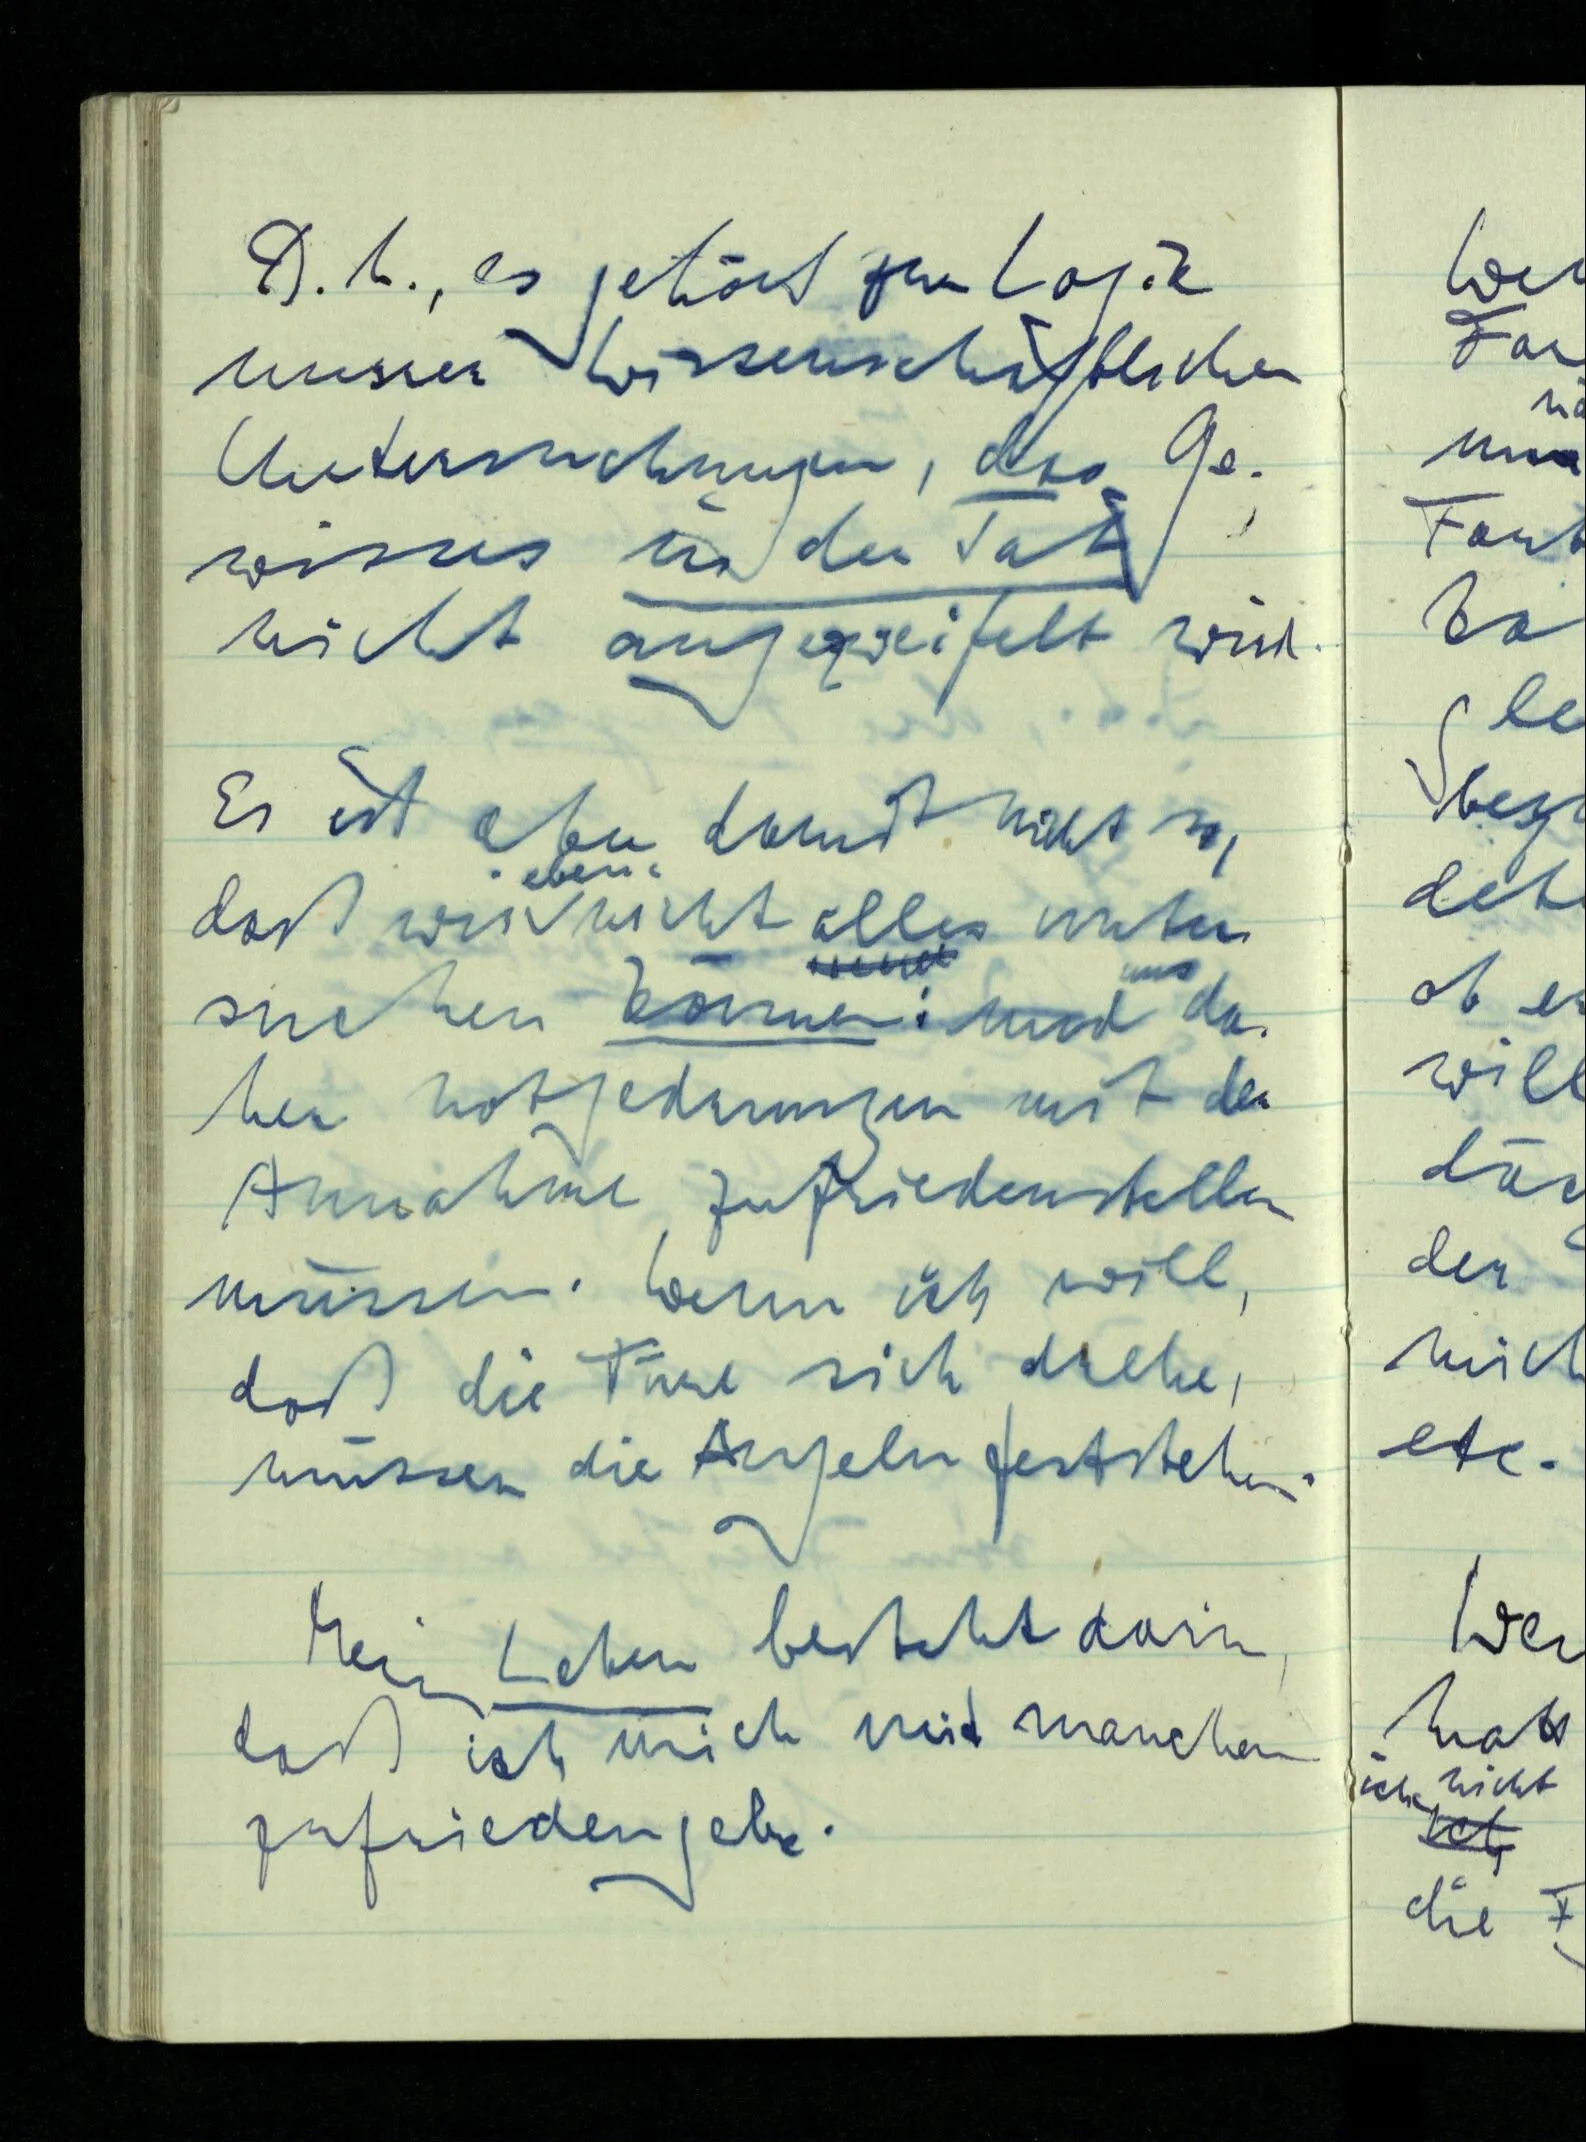 D. h., es gehört zur Logik
unsrer wissenschaftlichen
Untersuchungen, das Ge-
wisses in der Tat
nicht angezweifelt wird.
Es ist aber damit nicht so,
eben
daß wir nicht alles unter
suchen können: und uns da-
her notgedrungen mit der
Annahme zufriedenstellen
müssen. Wenn ich will,
daß die Türe sich drehe,
müssen die Angeln feststehen.
Mein Leben besteht darin,
daß ich mich mit manchem
zufriedengebe.
ob er
will
der
etc.
ich nicht
die